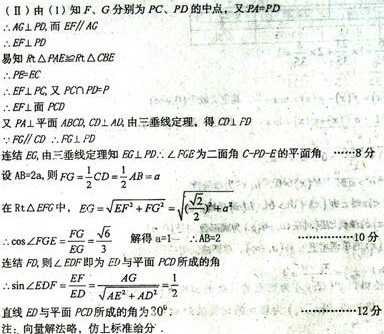 (Ⅱ)由(Ⅰ)知 F、G 分别为 PC、PD 的中点，又 PA=PD
∴AG⊥PD,而 EF∥AG
∴EF⊥PD
易知 Rt△PAE≌Rt△CBE
∴PE=EC
∴EF⊥PC,又 PC∩PD=P
∴EF⊥面 PCD
又 PA⊥平面 ABCD,CD⊥AD,由三垂线定理，得 CD⊥FD
∵FG∥CD ∴FG⊥PD
连结 EG,由三垂线定理知 EG⊥PD∴∠FGE 为二面角 C-PD-E 的平面角 ……8分
设 AB=2a,则 FG=1/2CD=1/2AB=a
在 Rt△EFG 中， EG=√(EF²+FG²)=√((√2/2)²+a²)
∴cos∠FGE=FG/EG=√6/3 解得 a=1 ∴AB=2 …………10分
连结 FD,则∠EDF 即为 ED 与平面 PCD 所成的角
∴sin∠EDF=EF/ED=AG/√(AE²+AD²)=1/2
直线 ED 与平面 PCD 所成的角为 30°. …………12分
注：向量解法略，仿上标准给分.